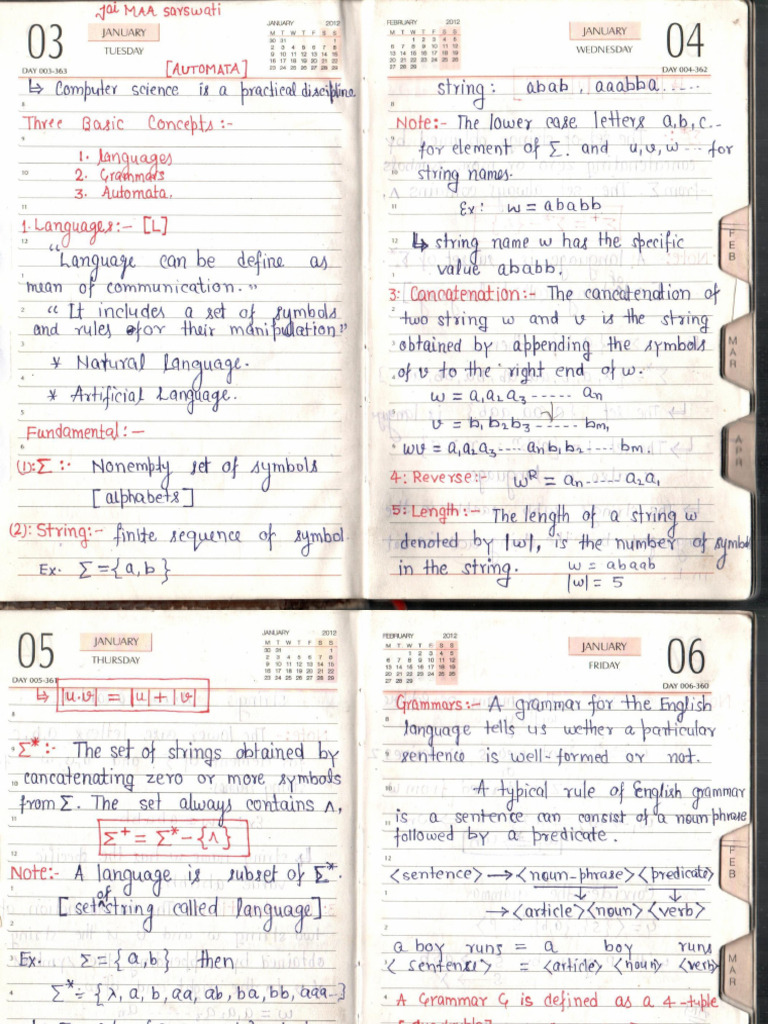 Jai MAA Sarswati
03
JANUARY
TUESDAY
DAY 003-363
JANUARY 2012
M T W T F S S
30 31 1
2 3 4 5 6 7 8
9 10 11 12 13 14 15
16 17 18 19 20 21 22
23 24 25 26 27 28 29
[AUTOMATA]
↳ Computer science is a practical discipline
Three Basic Concepts:-
1. languages
2. Grammars
3. Automata.
1. Languages:- [L]
"Language can be define as
mean of communication."
"It includes a set of symbols
and rules for their manipulation"
* Natural Language.
* Artificial Language.
Fundamental:-
(1): Σ:- Nonempty set of symbols
[alphabets]
(2): String:- finite sequence of symbol.
Ex. Σ = {a, b}
FEBRUARY 2012
M T W T F S S
1 2 3 4 5
6 7 8 9 10 11 12
13 14 15 16 17 18 19
20 21 22 23 24 25 26
27 28 29
JANUARY
WEDNESDAY
04
DAY 004-362
string: abab, aaabba.....
Note:- The lower case letters a,b,c--
for element of Σ. and u,v,w --- for
string names.
Ex: w = ababb
↳ string name w has the specific
value ababb.
3: Cancatenation:- The cancatenation of
two string w and v is the string
obtained by appending the symbols
of v to the right end of w.
w = a₁a₂a₃ ----- aₙ
v = b₁b₂b₃ ----- bₘ,
wv = a₁a₂a₃---- aₙb₁b₂---- bₘ.
4: Reverse:- wᴿ = aₙ----- a₂a₁
5: Length:- The length of a string w
denoted by |w|, is the number of symbols
in the string. w = abaab
|w| = 5
FEB
MAR
APR
05
JANUARY
THURSDAY
DAY 005-361
JANUARY 2012
M T W T F S S
30 31 1
2 3 4 5 6 7 8
9 10 11 12 13 14 15
16 17 18 19 20 21 22
23 24 25 26 27 28 29
↳ |u.v| = |u| + |v|
Σ*:- The set of strings obtained by
cancatenating zero or more symbols
from Σ. The set always contains ∧,
Σ⁺ = Σ* - {∧}
Note:- A language is subset of Σ*.
[set of string called language]
Ex. Σ = {a, b} then
Σ* = {λ, a, b, aa, ab, ba, bb, aaa--}
FEBRUARY 2012
M T W T F S S
1 2 3 4 5
6 7 8 9 10 11 12
13 14 15 16 17 18 19
20 21 22 23 24 25 26
27 28 29
JANUARY
FRIDAY
06
DAY 006-360
Grammars:- A grammar for the English
language tells us wether a particular
sentence is well-formed or not.
A typical rule of English grammar
is a sentence can consist of a noun phrase
followed by a predicate.
<sentence> → <noun-phrase><predicate>
→ <article><noun><verb>
a boy runs = a boy runs
<sentense> = <article> <noun> <verb>
A Grammar G is defined as a 4-tuple
FEB
MAR